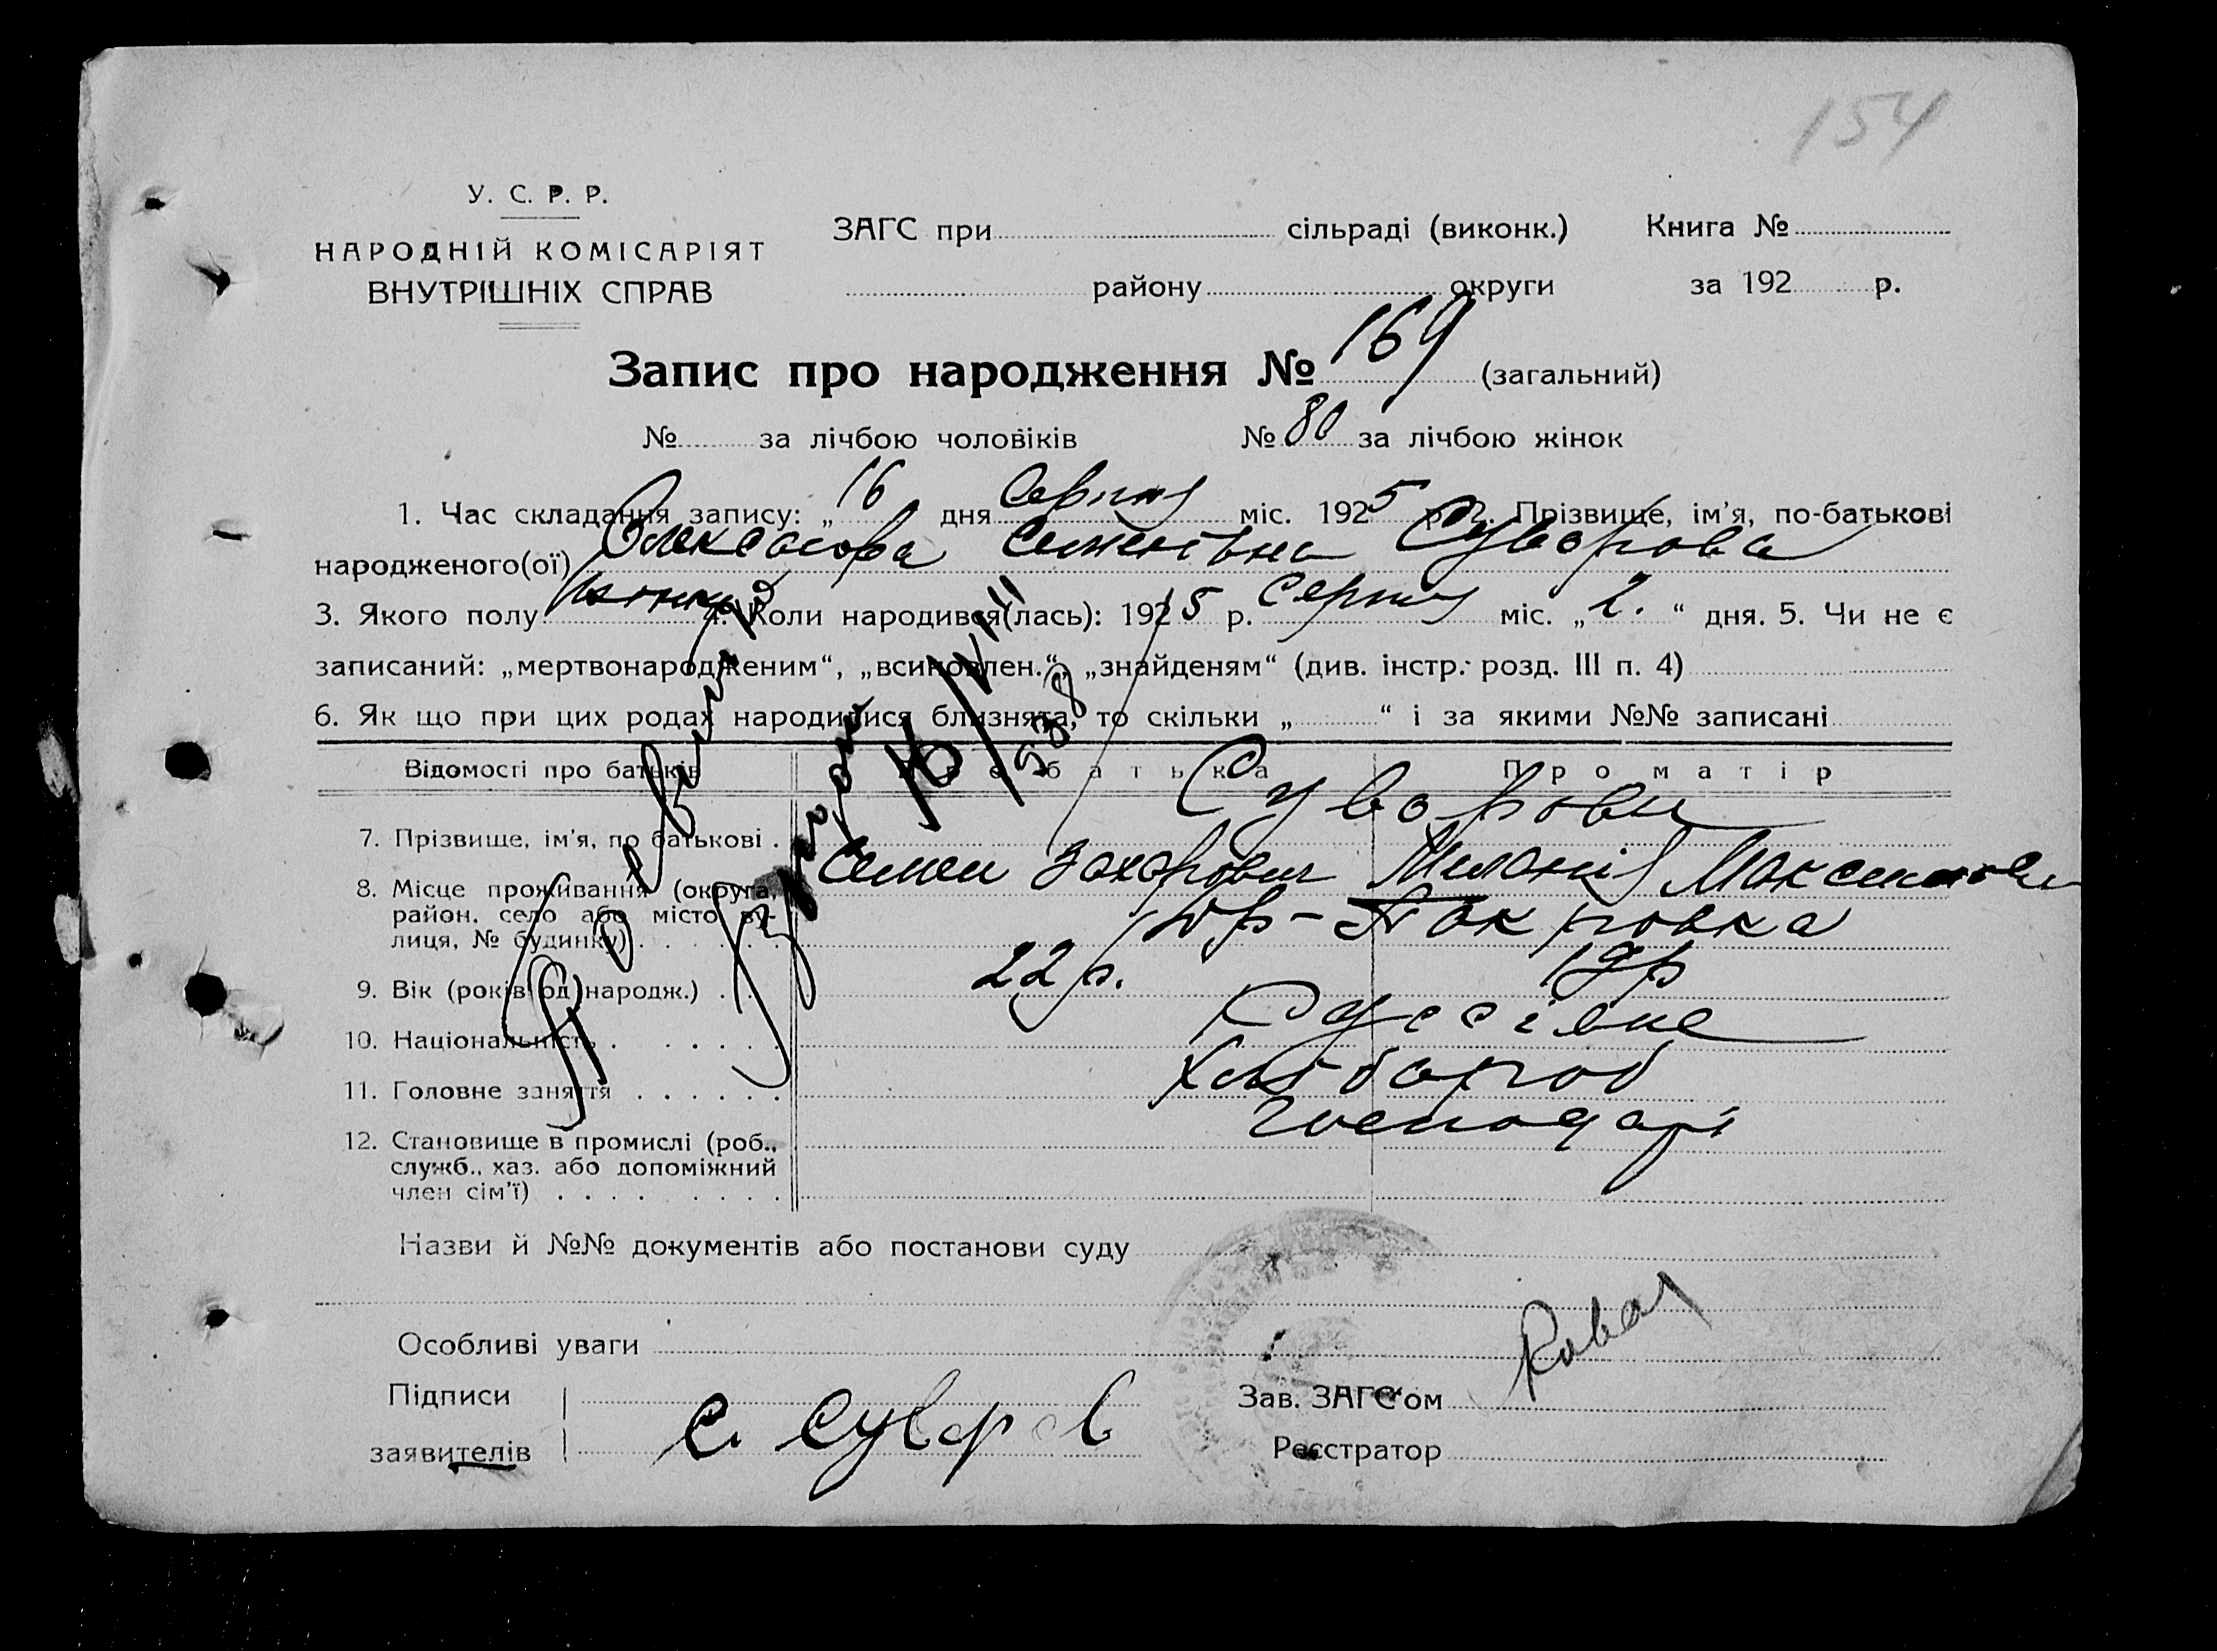 154
У. С. Р. Р.
НАРОДНІЙ КОМІСАРІЯТ
ВНУТРІШНІХ СПРАВ
ЗАГС при сільраді (виконк.) Книга №
району округи за 192 р.
Запис про народження № 169 (загальний)
№ за лічбою чоловіків № 80 за лічбою жінок
1. Час складання запису: „ 16 дня Серпня міс. 1925 р. 2. Прізвище, ім'я, по-батькові
народженого(ої) Олександра Семенівна Суворова
3. Якого полу 4. Коли народився(лась): 1925 р. Серпня міс. „ 2. “ дня. 5. Чи не є
записаний: „мертвонародженим“, „всиновлен.“, „знайденям“ (див. інстр.: розд. III п. 4)
6. Як що при цих родах народилися близнята, то скільки „ “ і за якими №№ записані
Відомості про батьків Про батька Про матір
Суворови
7. Прізвище, ім'я, по батькові .
Семен Захарович Меланія
8. Місце проживання (округа, район, село або місто, ву-
лиця, № будинку) . . . . . .
Юр-Покровка
9. Вік (років од народж.) . . . 22 р. 19 р
10. Національність . . . . . .
11. Головне заняття . . . . . . Хлібороб
господарі
12. Становище в промислі (роб.,
служб., хаз. або допоміжний
член сім'ї) . . . . . . . . .
16/VIII
Назви й №№ документів або постанови суду
Особливі уваги
Підписи
заявителів С. Суворов
Зав. ЗАГС'ом
Реєстратор